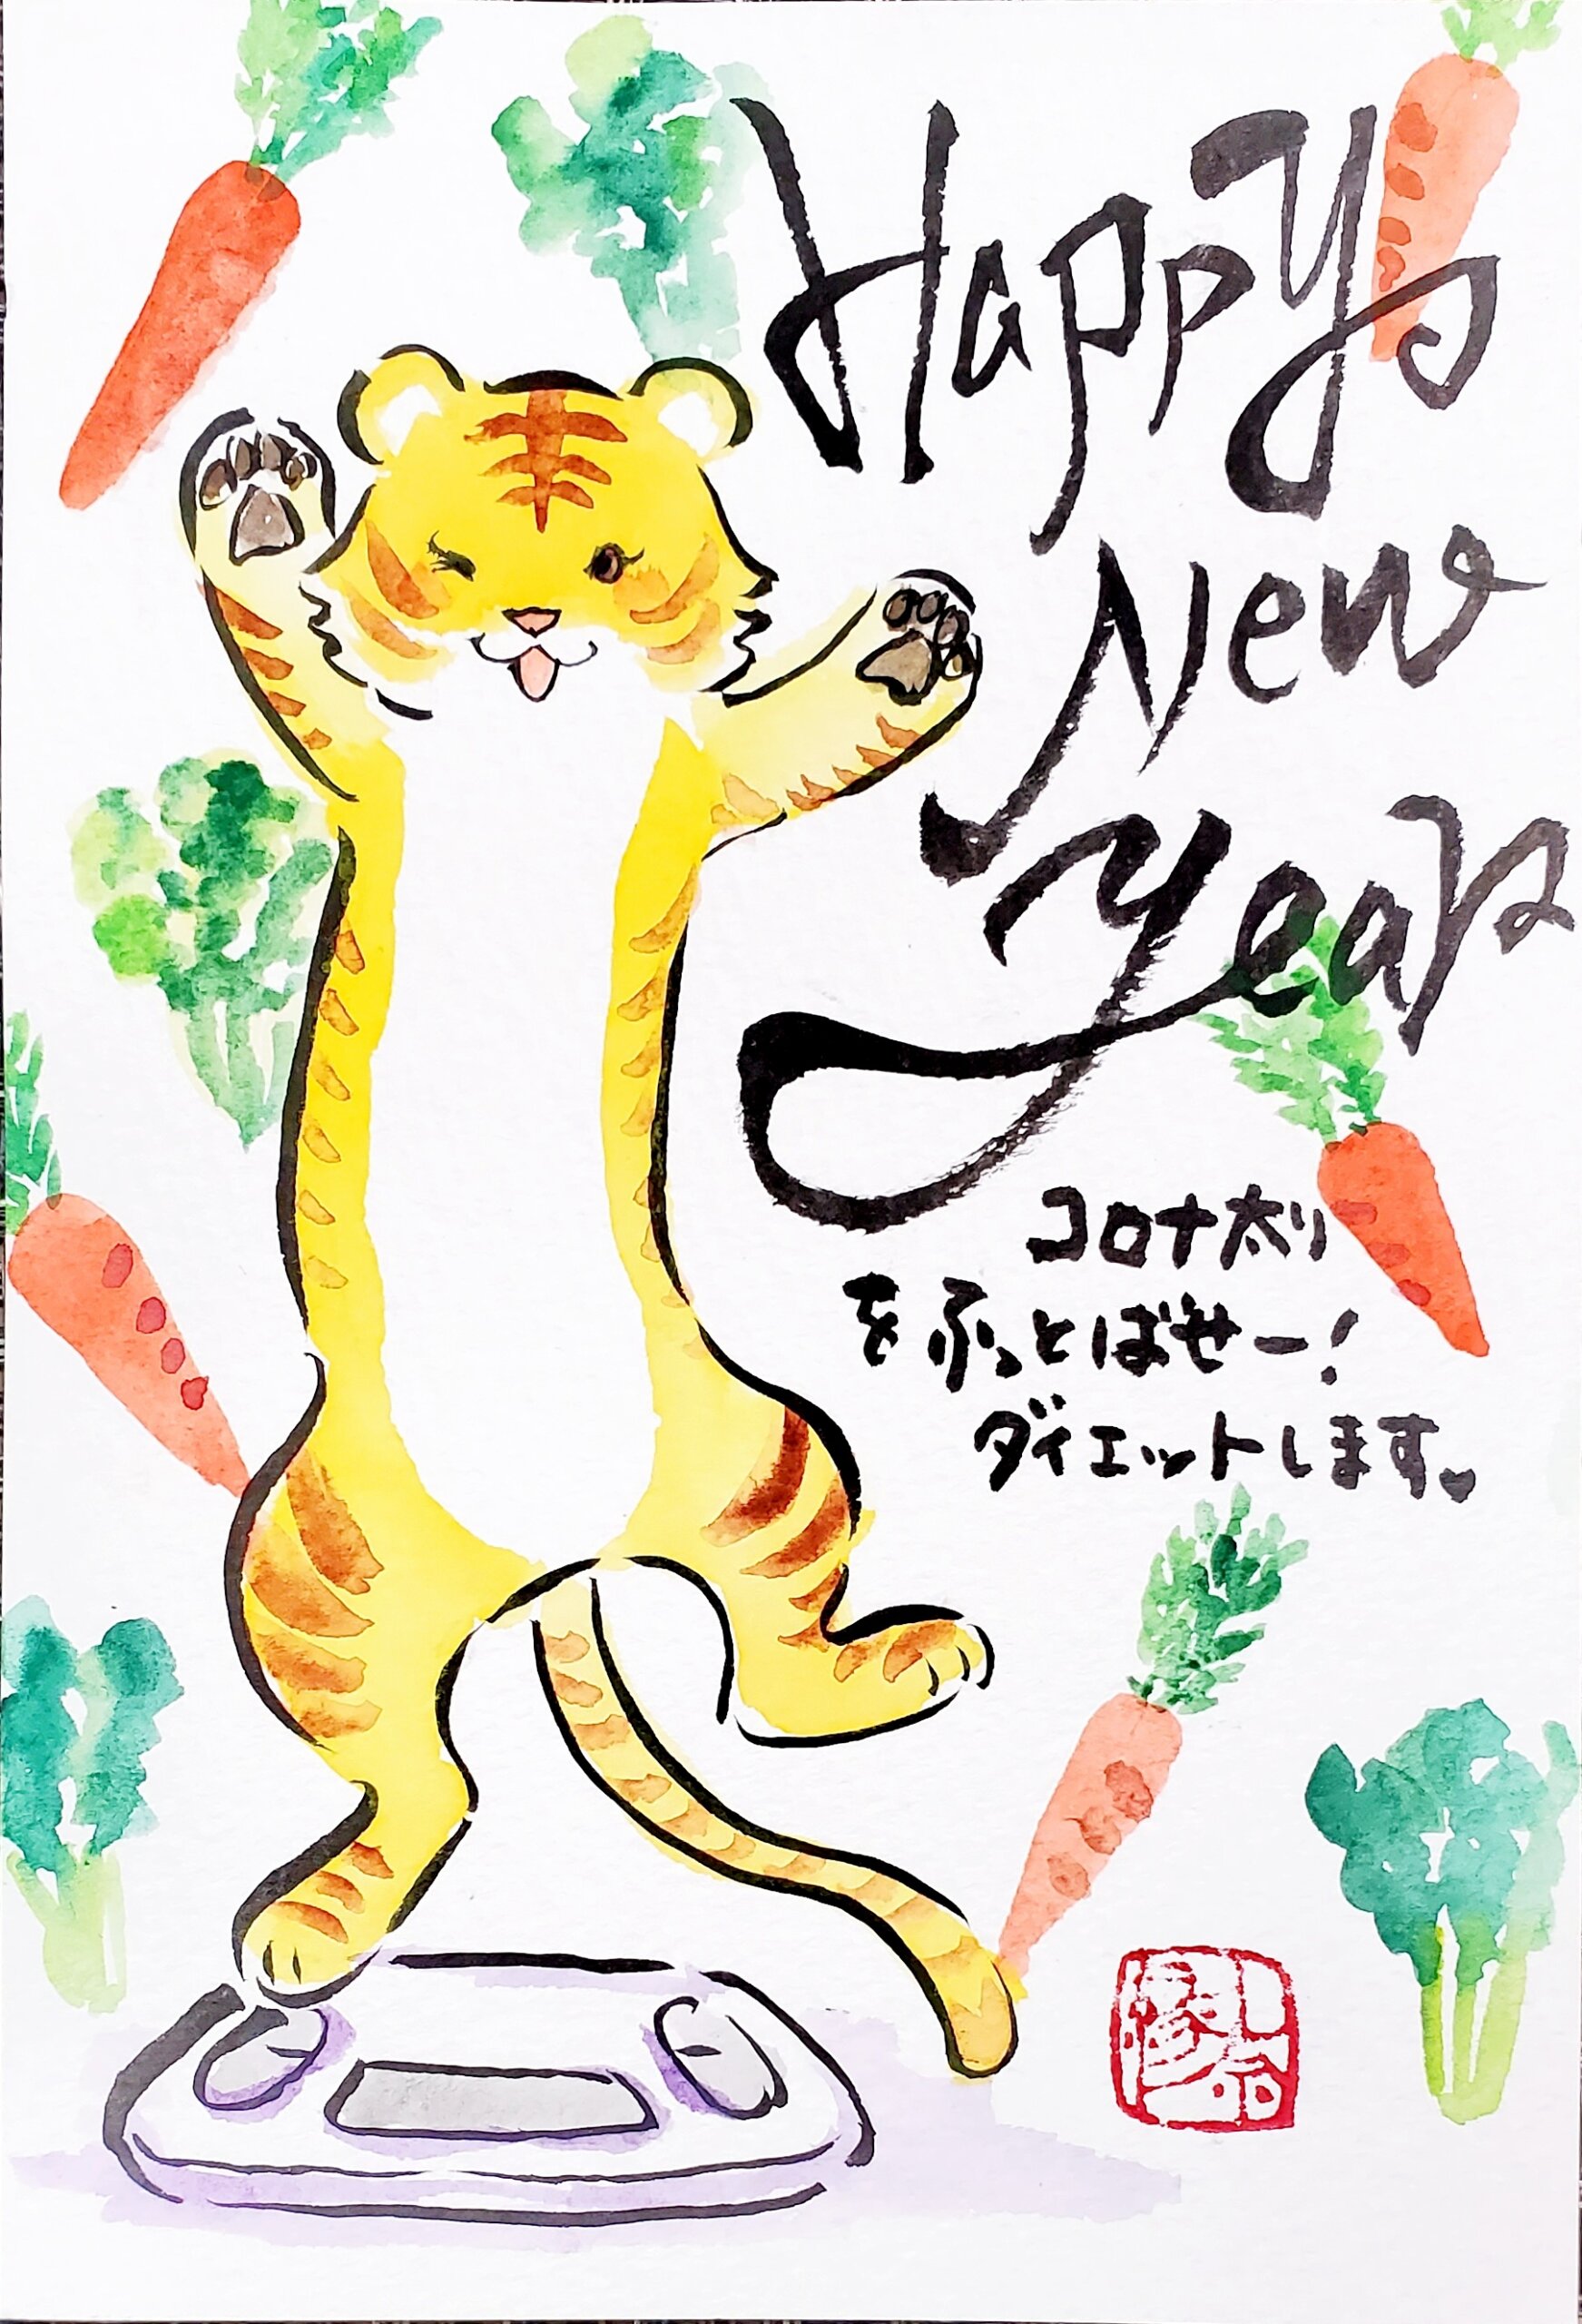 Happy
New
Year
コロナ太り
をふっとばせー!
ダイエットします♥